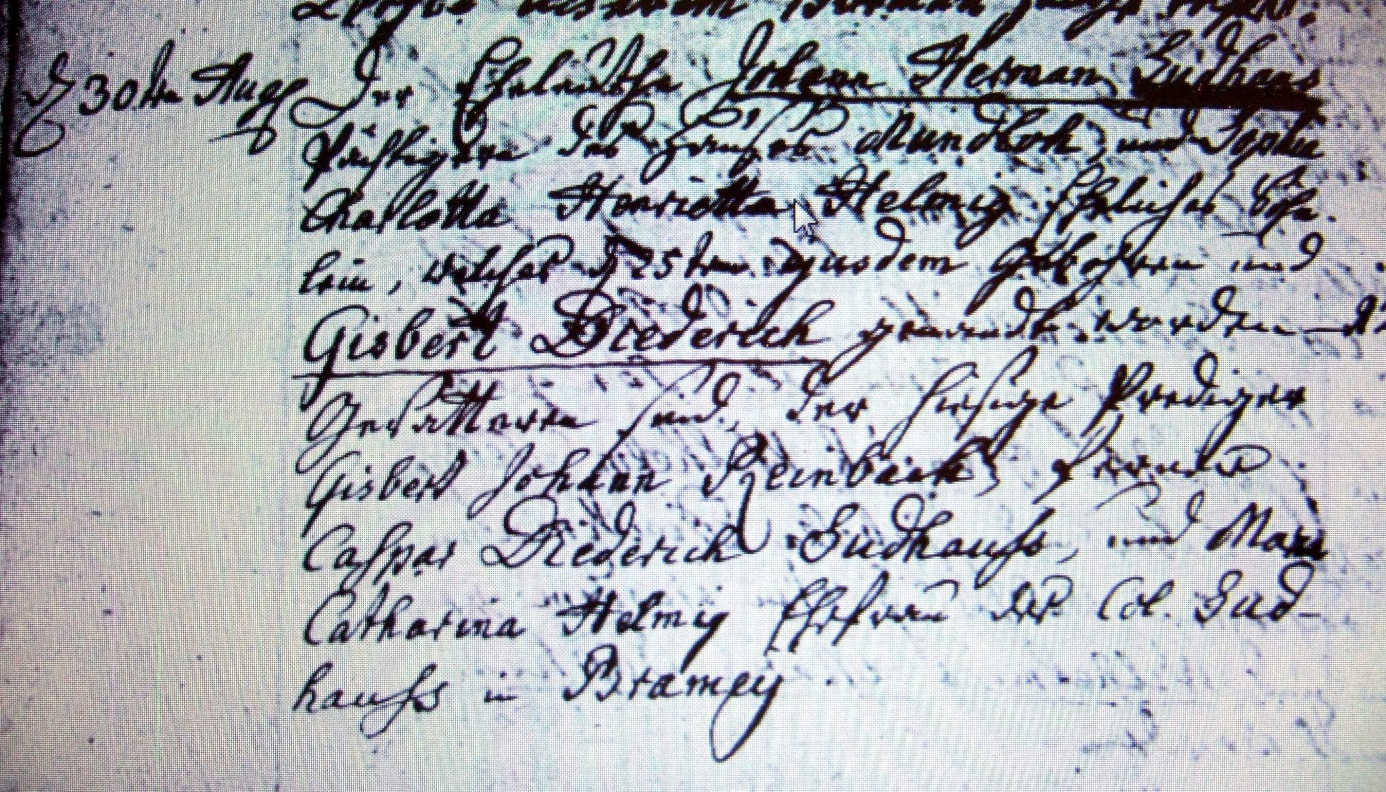 d 30ten Aug
Der Eheleuthe Johann Herman Sudhaus
Pächtigere des Hauses Mundloh, und Sophia
Charlotta Henrietta Helmig Ehliches Söhn-
lein, welches d 25ten ejusdem gebohren und
Gisbert Diederich genandt worden
Gevattere sind, der hiesige Prediger
Gisbert Johann Reinbach, ferner
Caspar Diederich Sudhauss, und Maria
Catharina Helmig Ehefrau des Col. Sud-
hauss in Bramey